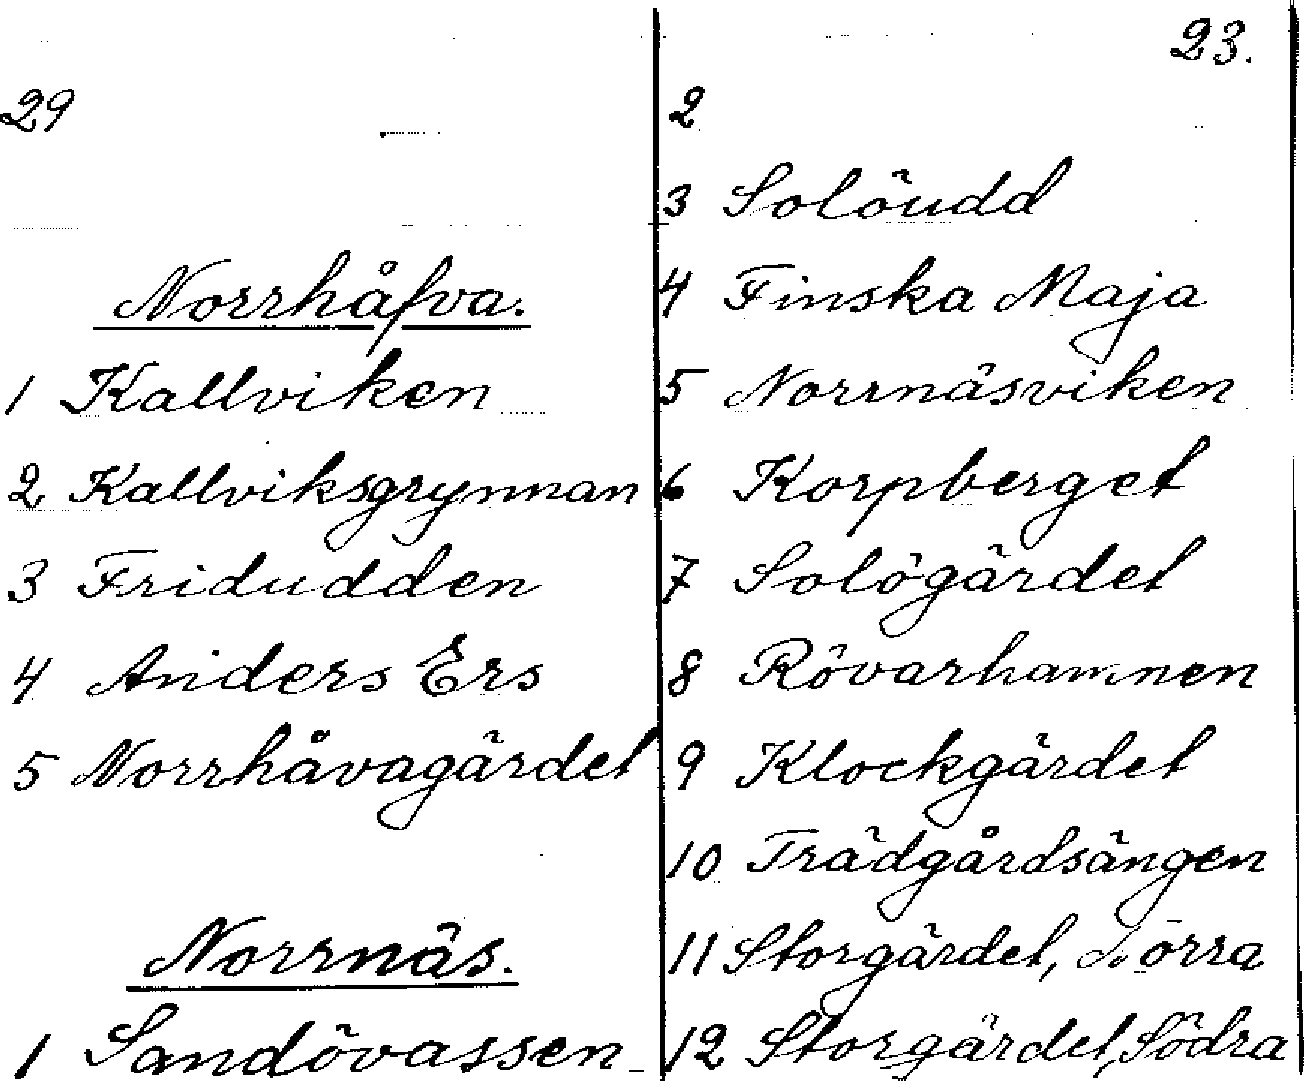 23.
29
Norrhåfva.
1 Kallviken
2 Kallviksgrynnan
3 Fridudden
4 Anders Ers
5 Norrhåvagärdet
Norrnäs.
1 Sandövassen
2
3 Solöudd
4 Finska Maja
5 Norrnäsviken
6 Korpberget
7 Solögärdet
8 Rövarhamnen
9 Klockgärdet
10 Trädgårdsängen
11 Storgärdet, Norra
12 Storgärdet, Södra